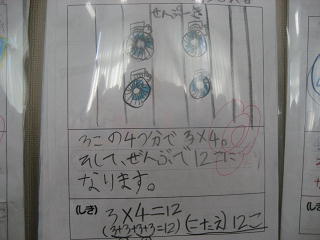 ぜんぶで
3この4つ分で3×4。
そして、ぜんぶで12こに
なります。
(しき) 3×4=12
(3+3+3+3=12) (こたえ) 12こ